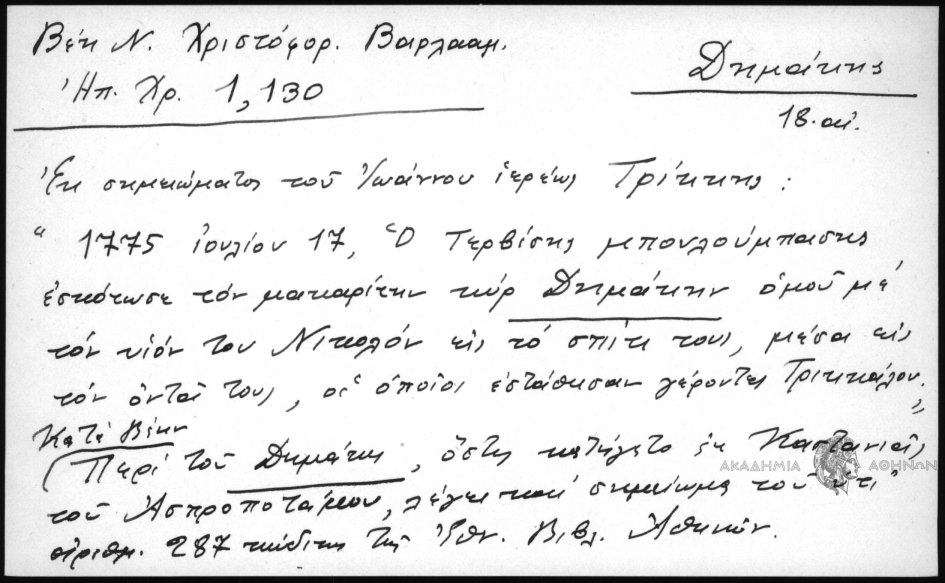 Βέη Ν. Χριστόφορ. Βαρλααμ.
Ἠπ. Χρ. 1,130
Δημάκης
18. αἰ.
Ἐκ σημειώματος τοῦ Ἰωάννου ἱερέως Τρίκκης :
"1775 ἰουλίου 17, Ὁ Τερβίσης μπουλούμπασης
ἐσκότωσε τόν μακαρίτην κύρ Δημάκην ὁμοῦ μέ
τόν υἱόν του Νικολόν εἰς τό σπίτι τους, μέσα εἰς
τόν ὀντᾶ τους, οἱ ὁποῖοι ἐστάθησαν γέροντες Τρικκάλου."
Κατά Βέην
(Περί τοῦ Δημάκη, ὅστις κατήγετο ἐκ Καστανιᾶς
τοῦ Ἀσπροποτάμου, λέγει καί σημείωμα τοῦ ὑπ'
ἀριθμ. 287 κώδικος τῆς Ἐθν. Βιβλ. Ἀθηνῶν.
ΑΚΑΔΗΜΙΑ ΑΘΗΝΩΝ